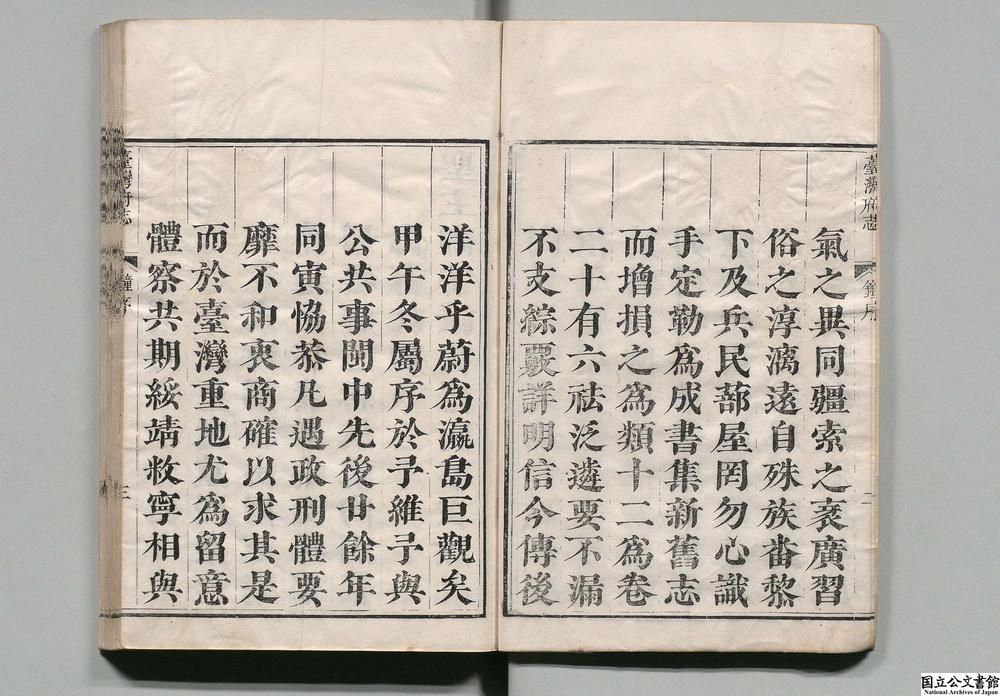 臺灣府志
鐘序
二
氣之異同疆索之袤廣習
俗之淳漓遠自殊族畨黎
下及兵民蔀屋罔勿心識
手定勒為成書集新舊志
而增損之為類十二為卷
二十有六祛泛遴要不漏
不支綜覈詳明信今傳後
洋洋乎蔚為瀛島巨觀矣
甲午冬屬序於予維予與
公共事閩中先後廿餘年
同寅恊恭凡遇政刑體要
靡不和衷商確以求其是
而於臺灣重地尤為留意
體察共期綏靖敉寧相與
臺灣府志
鐘序
三
国立公文書館
National Archives of Japan